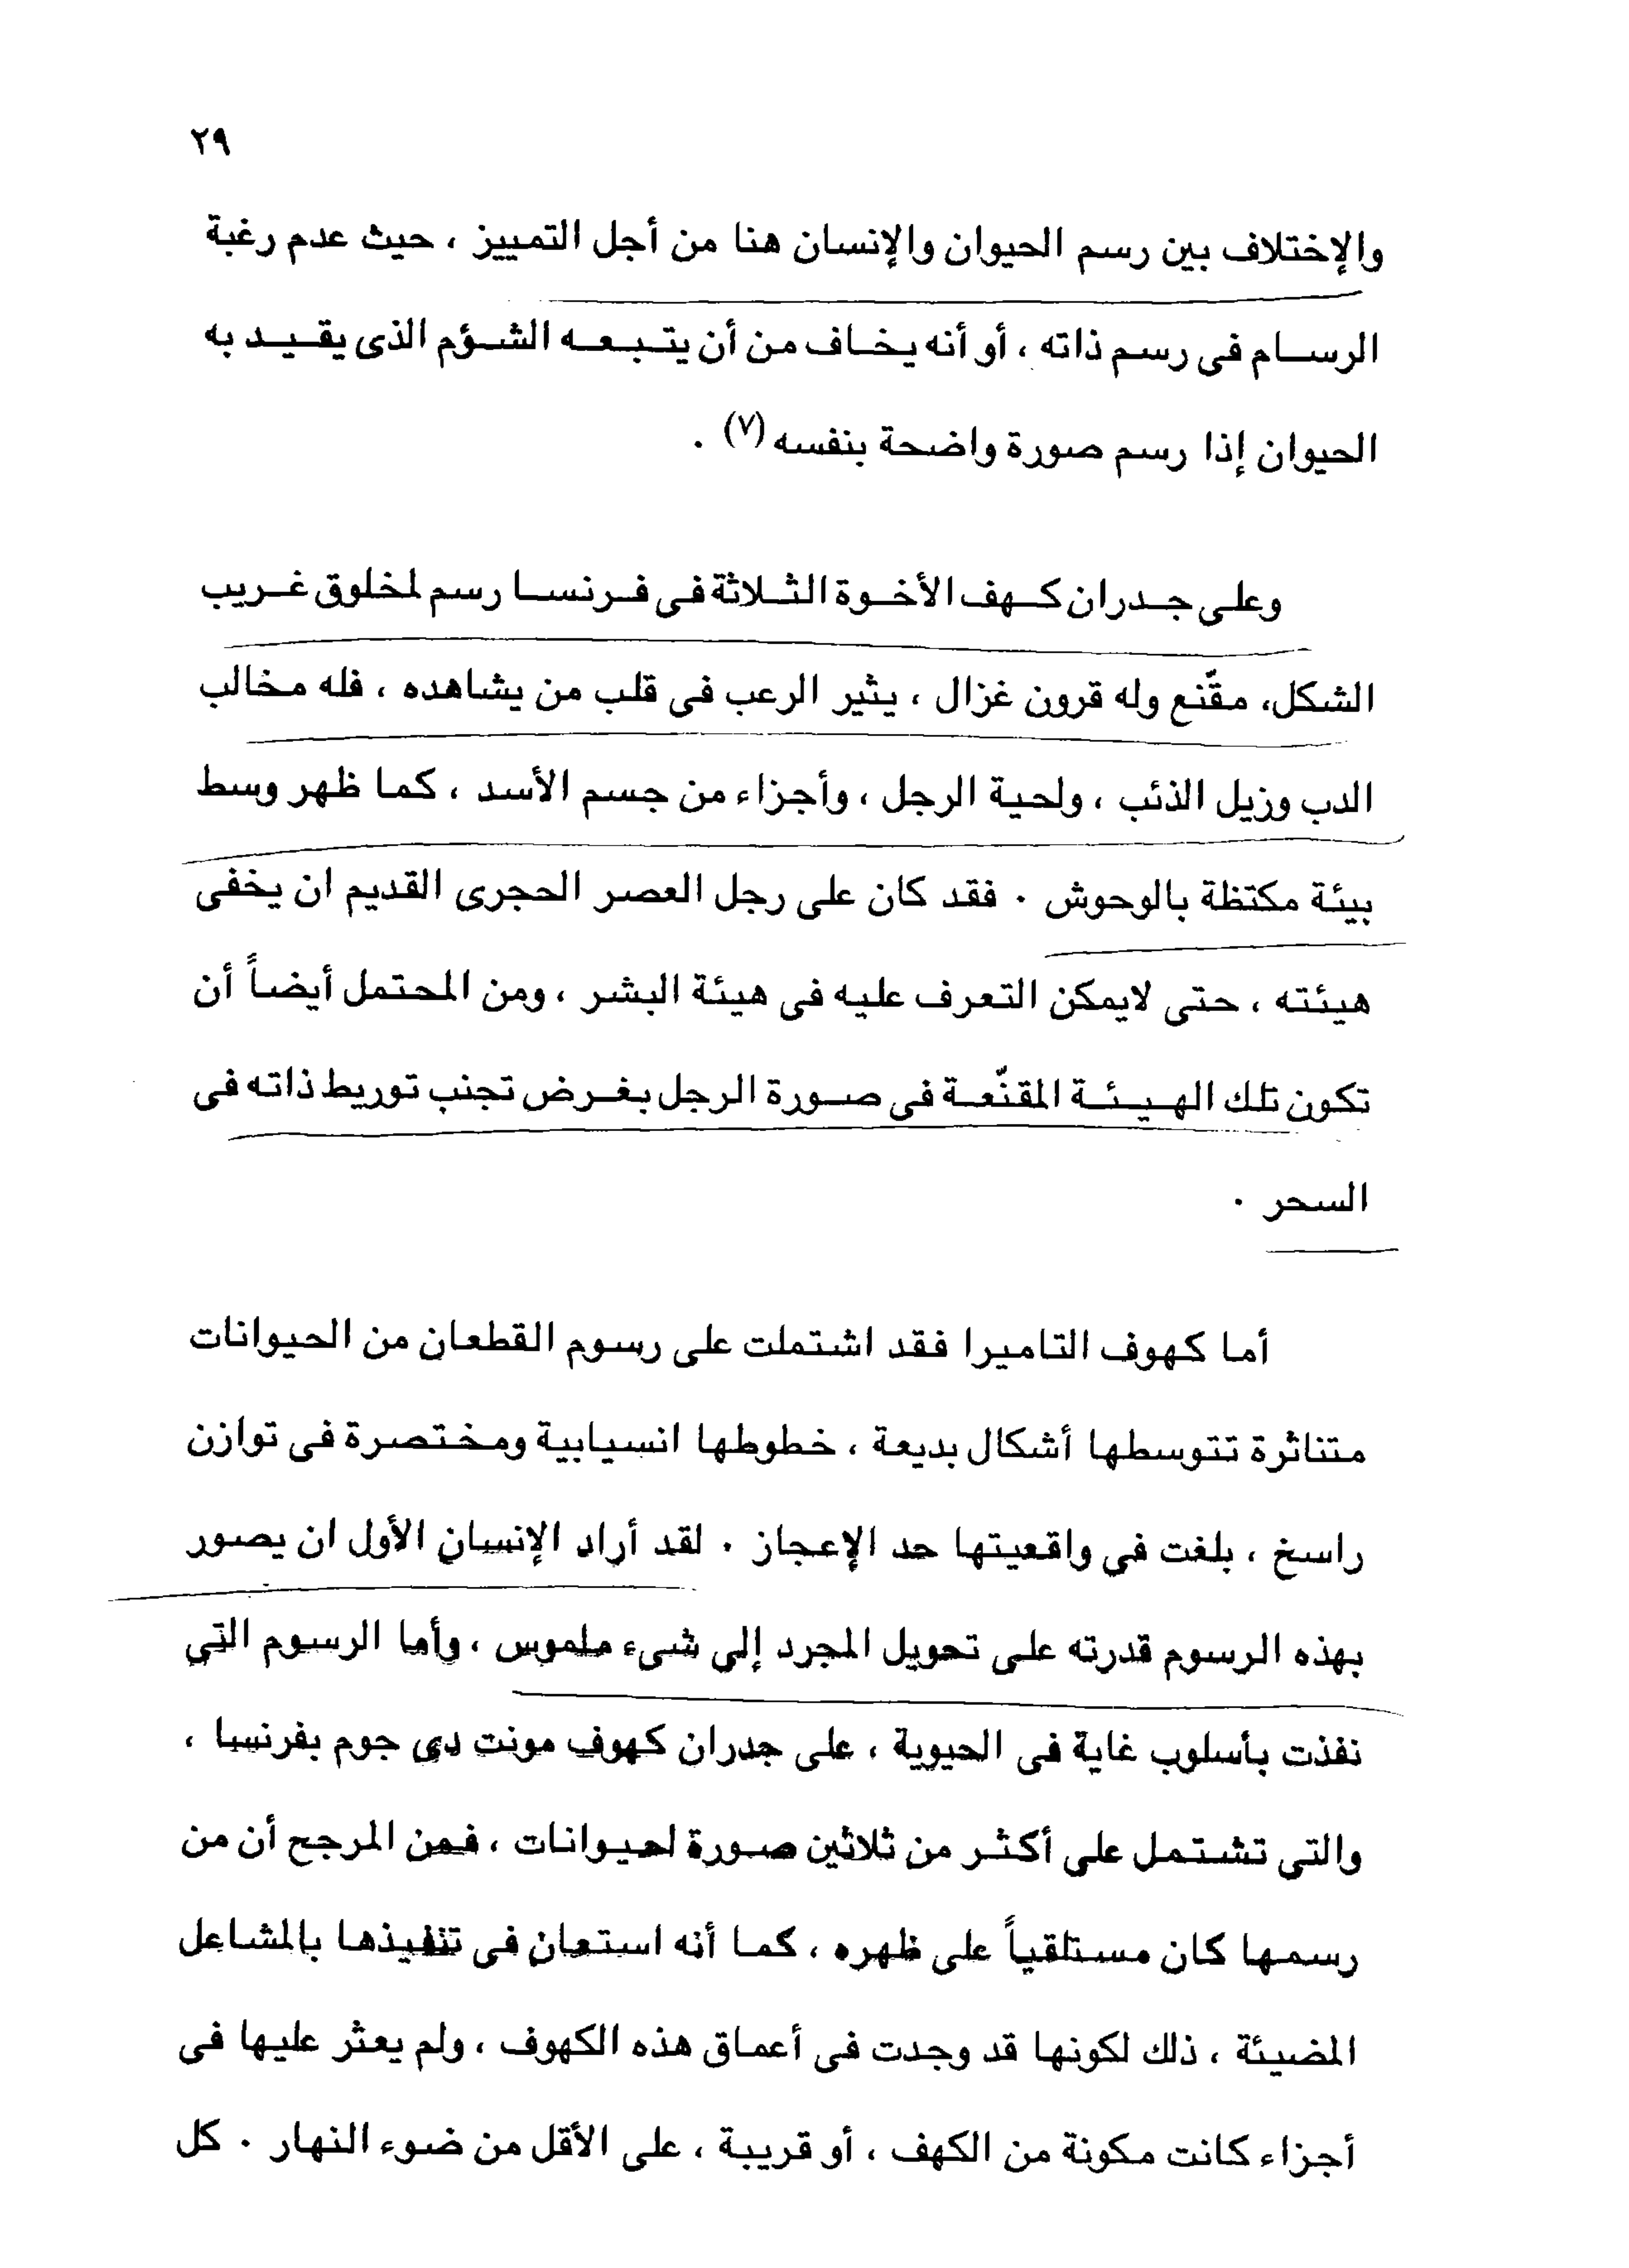 ٢٩
والإختلاف بين رسم الحيوان والإنسان هنا من أجل التمييز ، حيث عدم رغبة
الرسام فى رسم ذاته ، أو أنه يخاف من أن يتبعه الشؤم الذى يقيد به
الحيوان إذا رسم صورة واضحة بنفسه (٧) .
وعلى جدران كهف الأخوة الثلاثة فى فرنسا رسم لمخلوق غريب
الشكل، مقّنع وله قرون غزال ، يثير الرعب فى قلب من يشاهده ، فله مخالب
الدب وزيل الذئب ، ولحية الرجل ، وأجزاء من جسم الأسد ، كما ظهر وسط
بيئة مكتظة بالوحوش . فقد كان على رجل العصر الحجرى القديم ان يخفى
هيئته ، حتى لايمكن التعرف عليه فى هيئة البشر ، ومن المحتمل أيضاً أن
تكون تلك الهيئة المقنّعة فى صورة الرجل بغرض تجنب توريط ذاته فى
السحر .
أما كهوف التاميرا فقد اشتملت على رسوم القطعان من الحيوانات
متناثرة تتوسطها أشكال بديعة ، خطوطها انسيابية ومختصرة فى توازن
راسخ ، بلغت في واقعيتها حد الإعجاز . لقد أراد الإنسان الأول ان يصور
بهذه الرسوم قدرته على تحويل المجرد إلي شىء ملموس ، وأما الرسوم التي
نفذت بأسلوب غاية فى الحيوية ، على جدران كهوف مونت دي جوم بفرنسا ،
والتى تشتمل على أكثر من ثلاثين صورة لحيوانات ، فمن المرجح أن من
رسمها كان مستلقياً على ظهره ، كما أنه استعان فى تنفيذها بالمشاعل
المضيئة ، ذلك لكونها قد وجدت فى أعماق هذه الكهوف ، ولم يعثر عليها فى
أجزاء كانت مكونة من الكهف ، أو قريبة ، على الأقل من ضوء النهار . كل